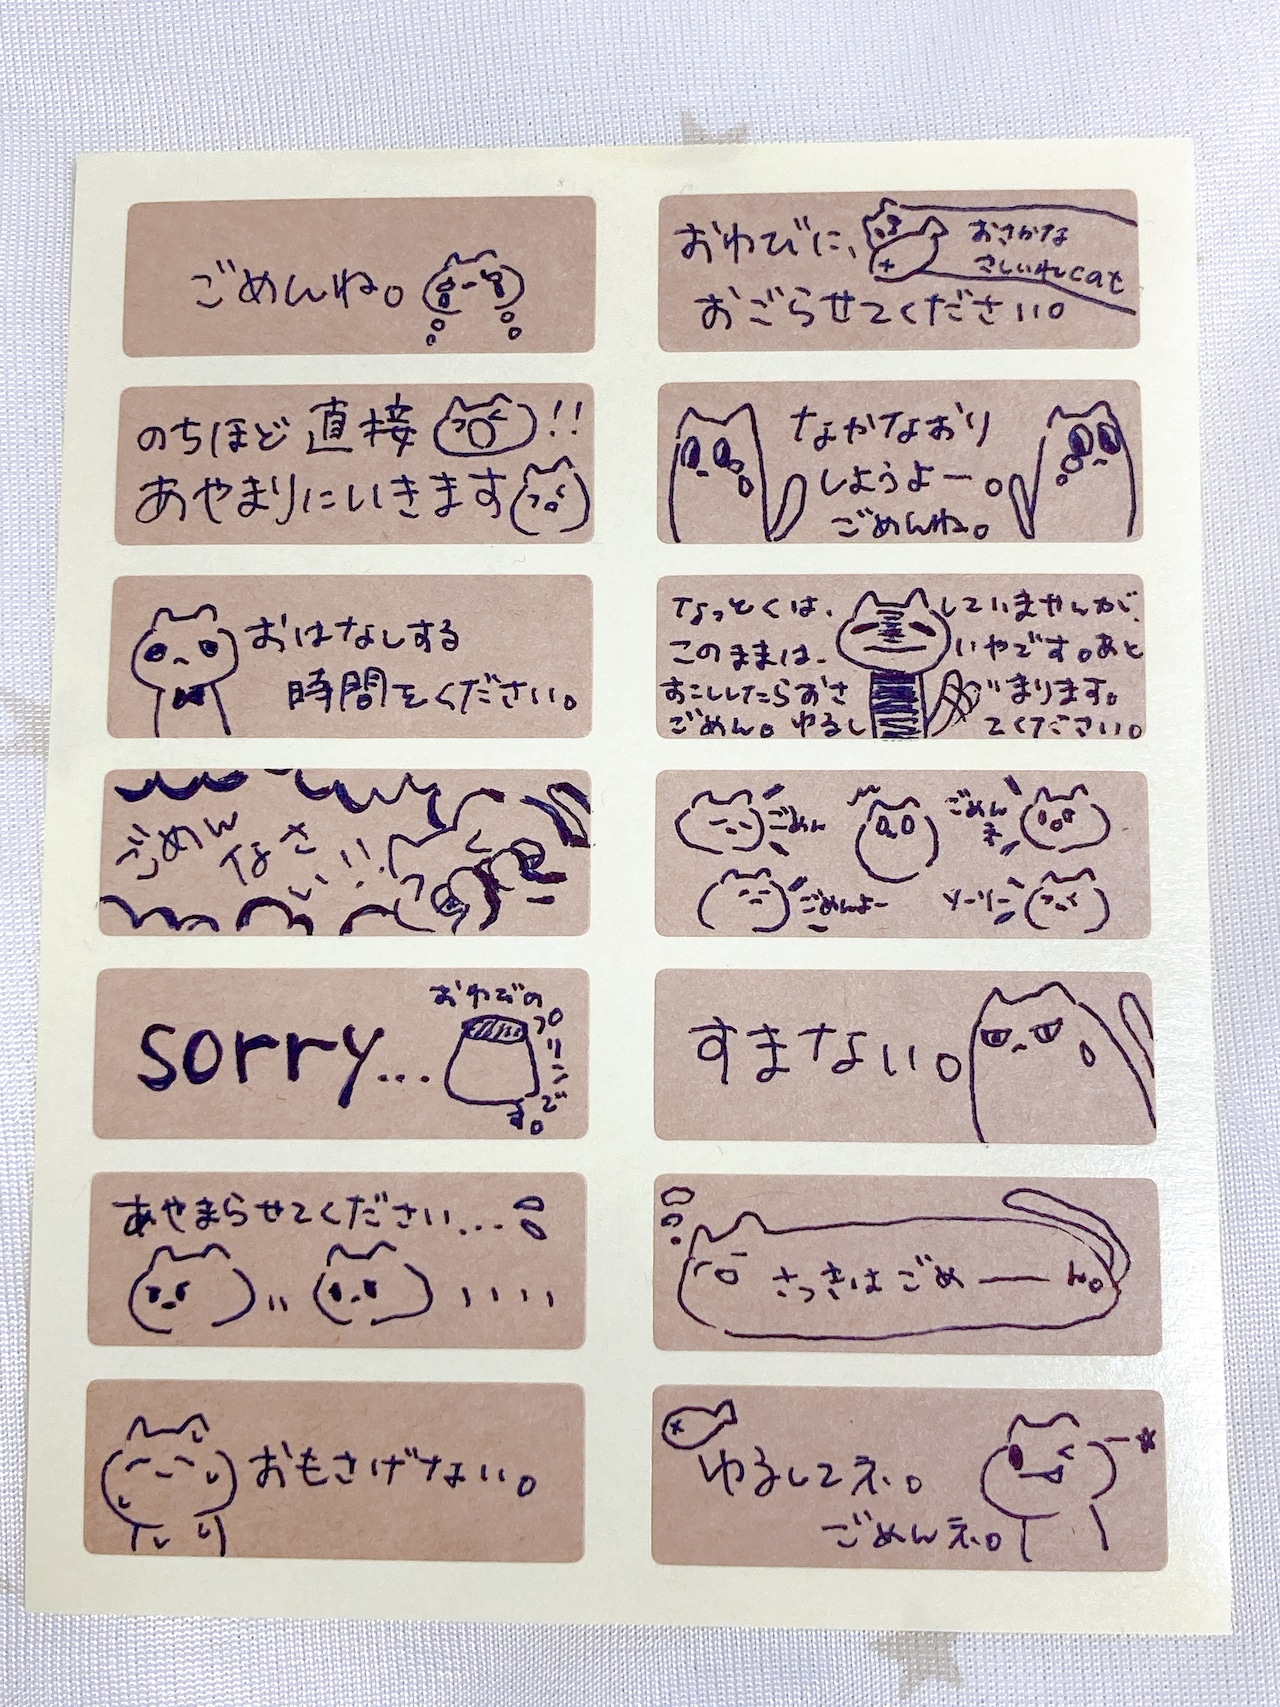 ごめんね。
おわびに、
おさかな
さしいれcat
おごらせてください。
のちほど直接!!
あやまりにいきます
なかなおり
しようよー。
ごめんね。
おはなしする
時間をください。
なっとくは、していませんが、
このままは、いやです。あと
すこししたらおさまります。
ごめん。ゆるしてください。
ごめん
なさ
い!!
ごめん
ごめん
ネ
ごめんよー
ソーリー
sorry...
おわびの
プリンで
す。
すまない。
あやまらせてください...
さっきはごめーん。
おもさげない。
ゆるしてネ。
ごめんネ。